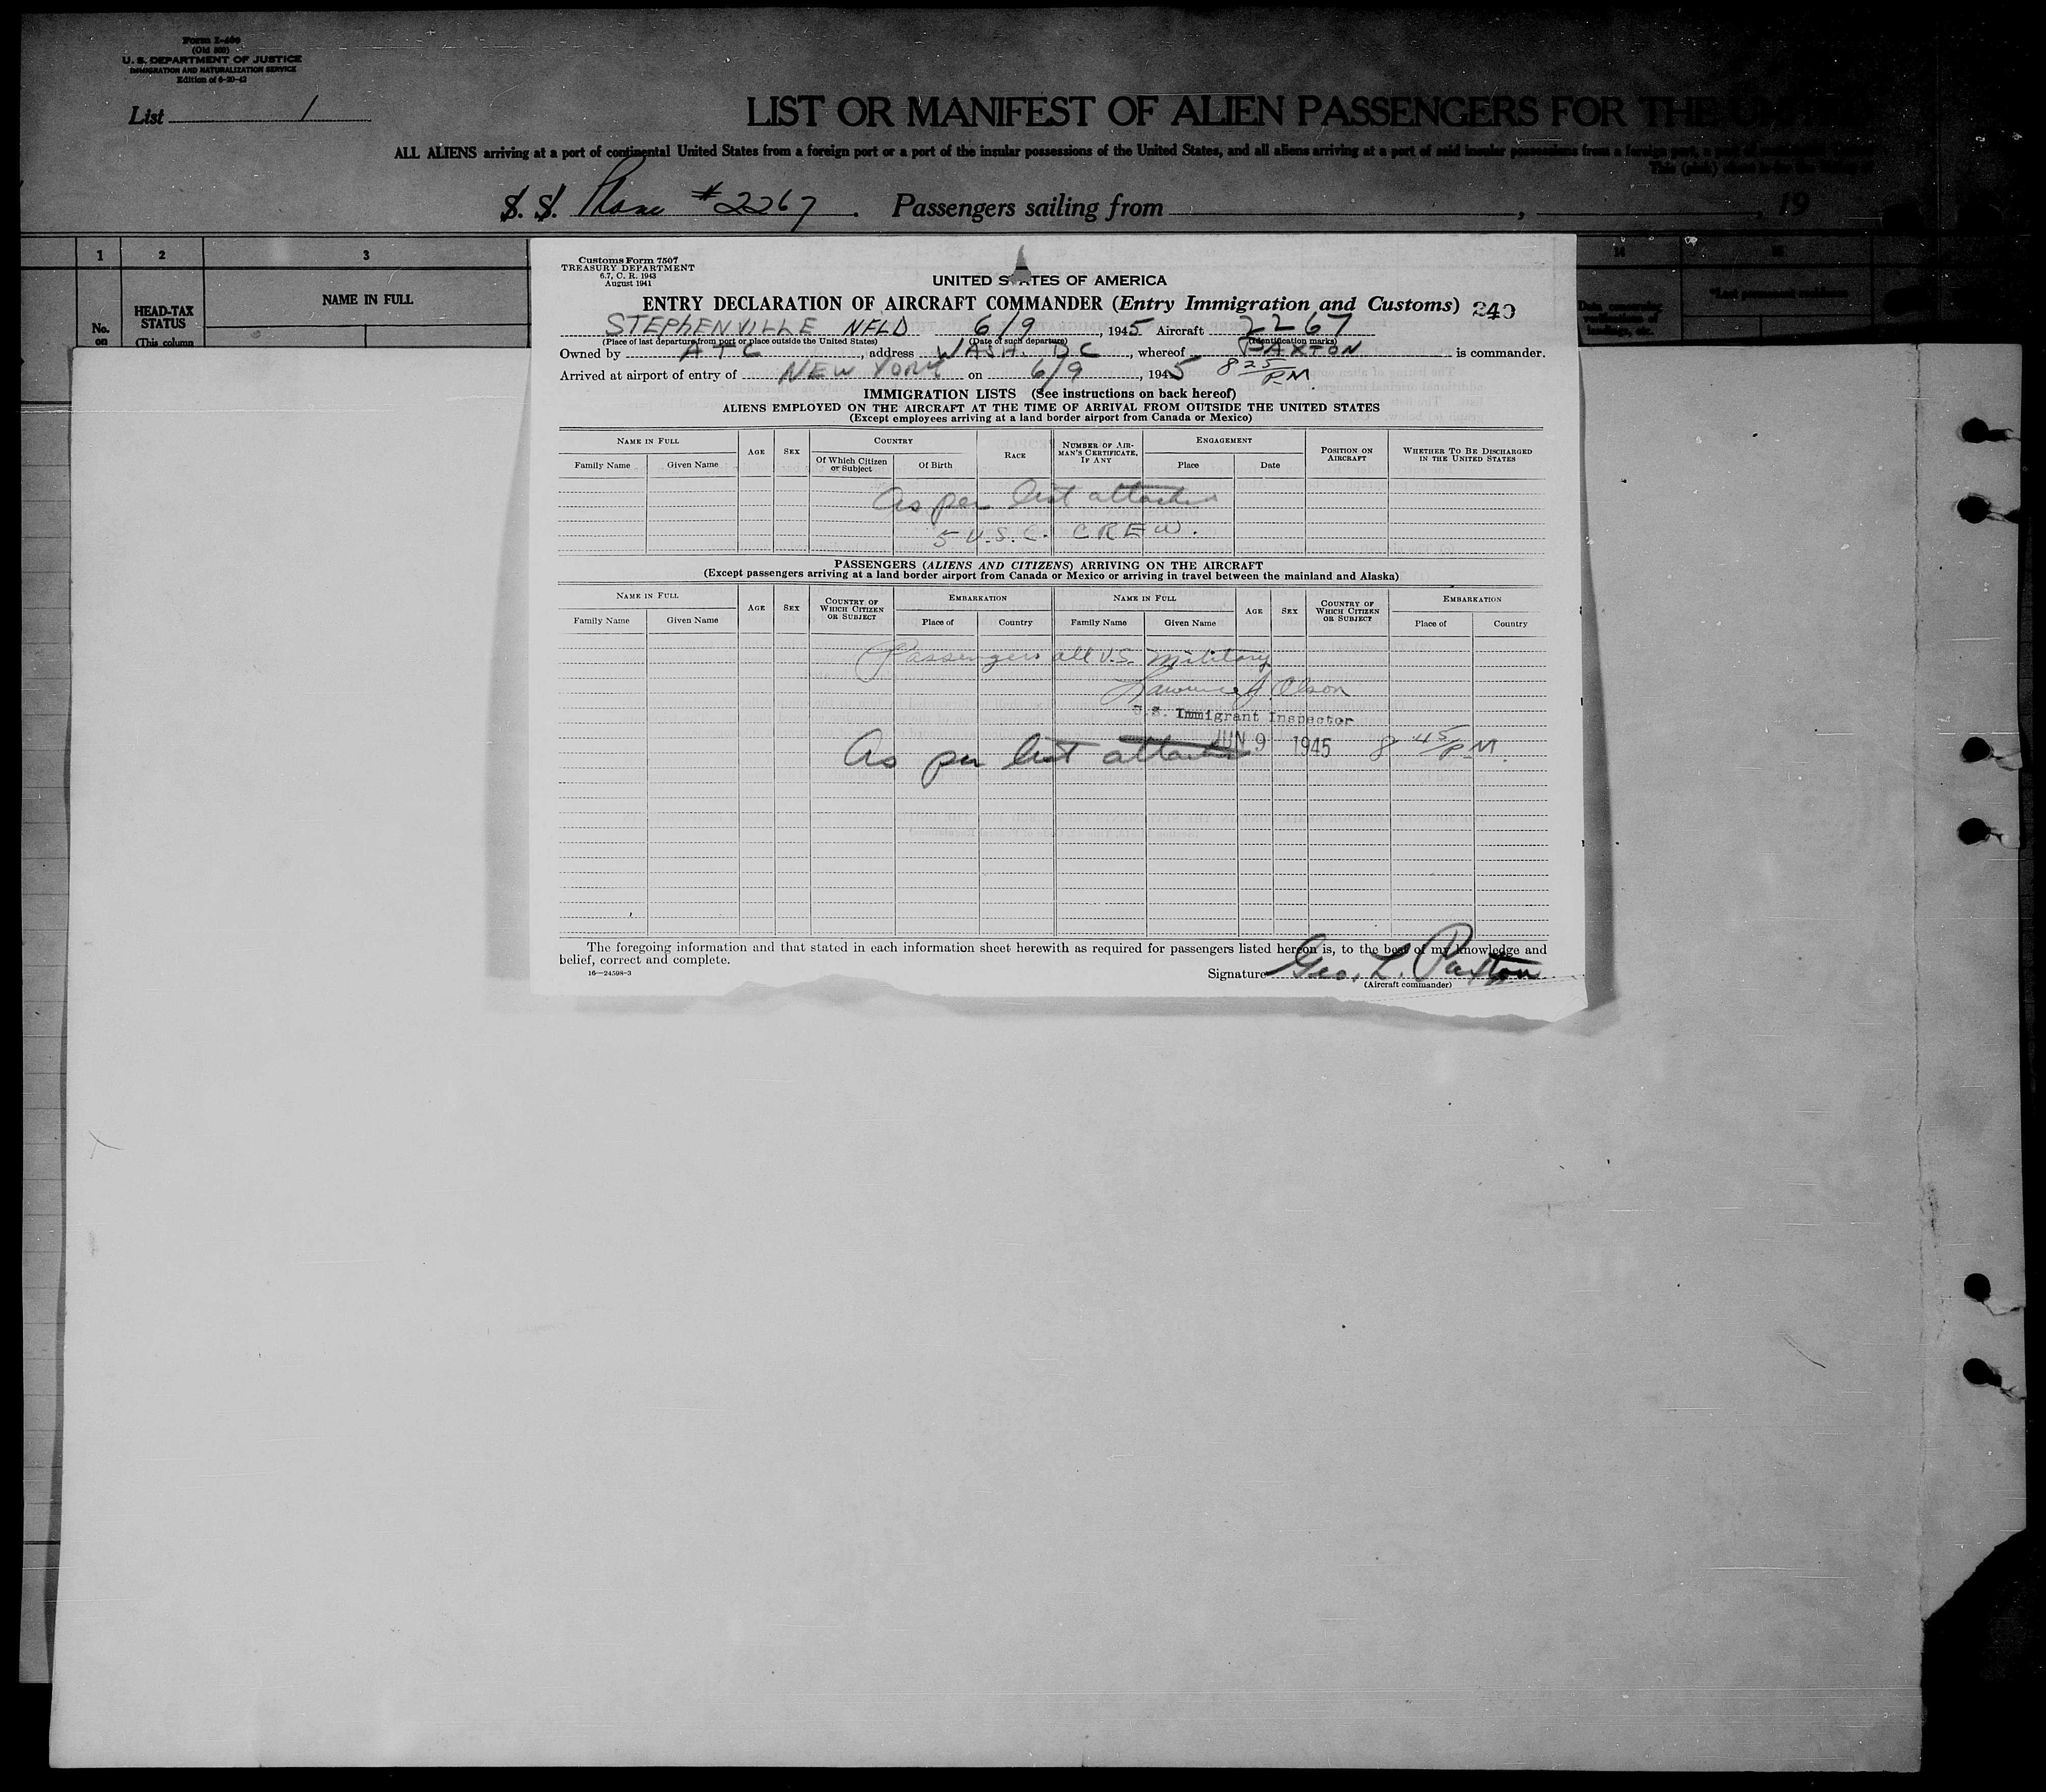 Form I-466
(Old 500)
U. S. DEPARTMENT OF JUSTICE
IMMIGRATION AND NATURALIZATION SERVICE
Edition of 6-20-42
List 1
LIST OR MANIFEST OF ALIEN PASSENGERS FOR THE
ALL ALIENS arriving at a port of continental United States from a foreign port or a port of the insular possessions of the United States, and all aliens arriving at a port of said insular possessions from a foreign port, a port of
S. S. Plane #2267. Passengers sailing from , , 19
1 2 3 14
No. on
HEAD-TAX STATUS
(This column
NAME IN FULL
Customs Form 7507
TREASURY DEPARTMENT
6.7, C. R. 1943
August 1941
UNITED STATES OF AMERICA
ENTRY DECLARATION OF AIRCRAFT COMMANDER (Entry Immigration and Customs) 240
STEPHENVILLE NFLD 6/9, 1945 Aircraft 2267
(Place of last departure from port or place outside the United States) (Date of such departure) (Identification marks)
Owned by ATC, address WASH. DC, whereof PAXTON is commander.
Arrived at airport of entry of NEW YORK on 6/9, 1945 8 25 PM
IMMIGRATION LISTS (See instructions on back hereof)
ALIENS EMPLOYED ON THE AIRCRAFT AT THE TIME OF ARRIVAL FROM OUTSIDE THE UNITED STATES
(Except employees arriving at a land border airport from Canada or Mexico)
NAME IN FULL AGE SEX COUNTRY RACE NUMBER OF AIRMAN'S CERTIFICATE, IF ANY ENGAGEMENT POSITION ON AIRCRAFT WHETHER TO BE DISCHARGED IN THE UNITED STATES
Family Name Given Name Of Which Citizen or Subject Of Birth Place Date
As per list attached
5 U.S.C. CREW.
PASSENGERS (ALIENS AND CITIZENS) ARRIVING ON THE AIRCRAFT
(Except passengers arriving at a land border airport from Canada or Mexico or arriving in travel between the mainland and Alaska)
NAME IN FULL AGE SEX COUNTRY OF WHICH CITIZEN OR SUBJECT EMBARKATION NAME IN FULL AGE SEX COUNTRY OF WHICH CITIZEN OR SUBJECT EMBARKATION
Family Name Given Name Place of Country Family Name Given Name Place of Country
Passengers all U.S. Military
Lawrence A. Olson
U.S. Immigrant Inspector
JUN 9 1945 8 45 PM.
As per list attached
The foregoing information and that stated in each information sheet herewith as required for passengers listed hereon is, to the best of my knowledge and
belief, correct and complete.
16—24598-3
Signature Geo. L. Paxton
(Aircraft commander)